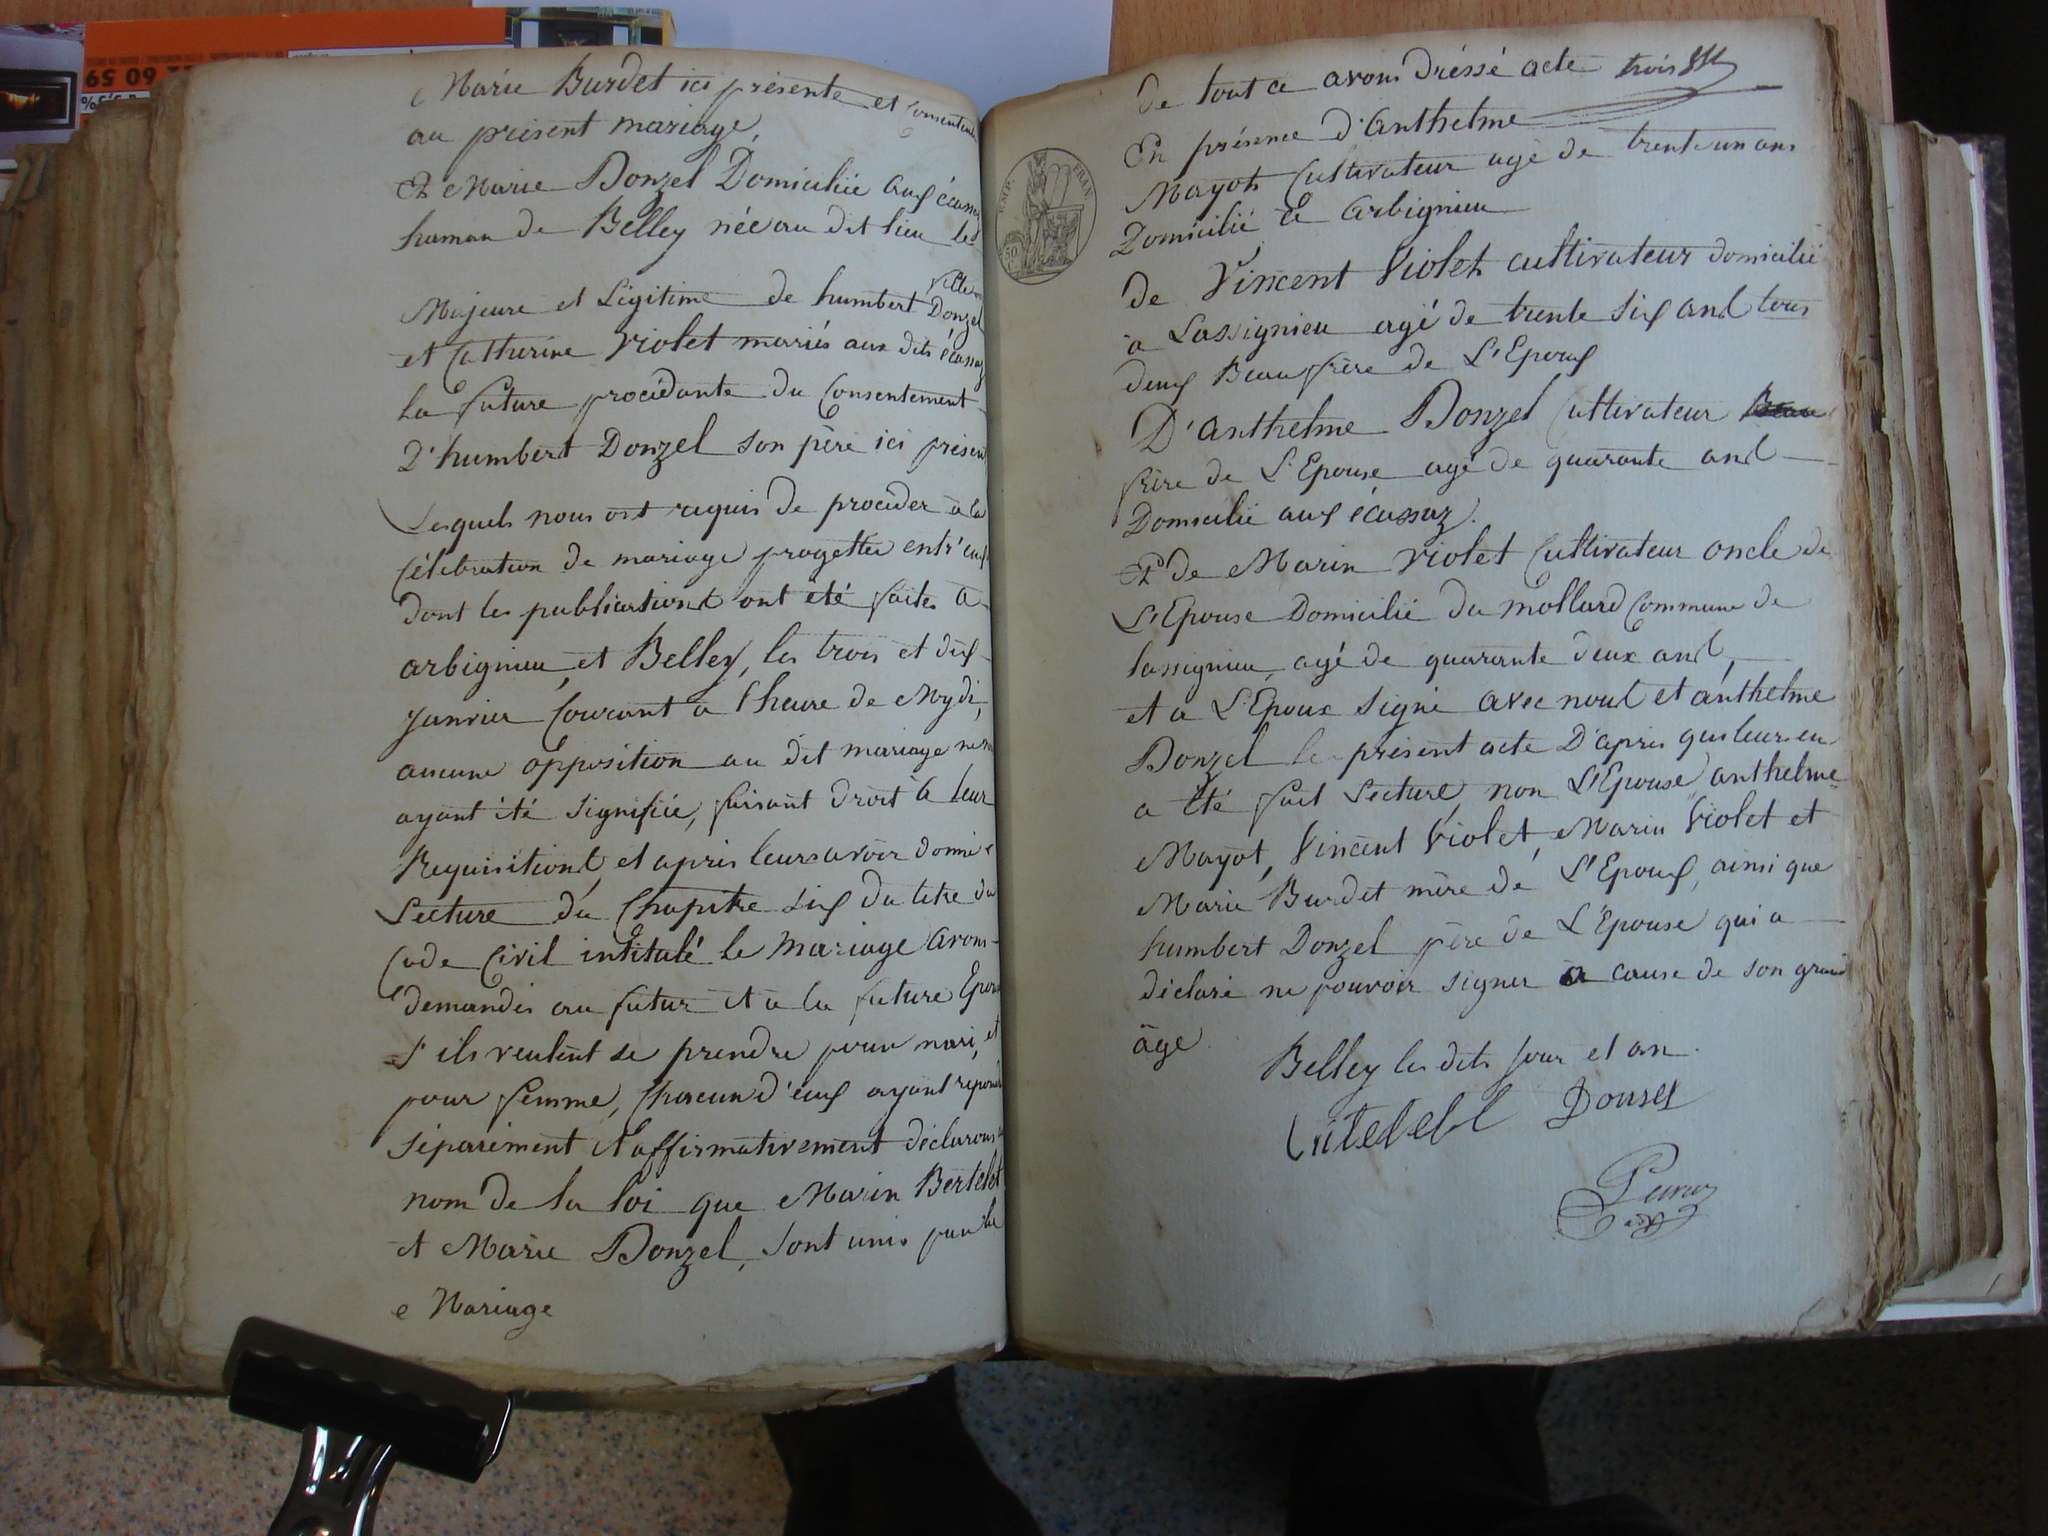 Marie Burdet ici présente et consentente
au présent mariage,
Et Marie Donzel Domiciliée aux écassaz
hameau de Belley née au dit lieu le
fille
Majeure et Légitime de humbert Donzel
et Catherine Violet mariés aux dits écassaz
La future procédante du Consentement
D'humbert Donzel son père ici présent
Lesquels nous ont requis de procéder à la
Célébration de mariage progetté entr'eux
dont les publications ont été faites à
arbignieu et Belley, les trois et dix
Janvier Courant a l'heure de Mydi,
aucune opposition au dit mariage ne
ayant été signifiée, faisant droit à leur
Requisitions, et après leurs avoir donné
Lecture du Chapitre six du titre du
Code Civil intitulé le Mariage avons
demandés au futur et à la future Epouse
s'ils veulent se prendre pour mari, et
pour femme, Chacun d'eux ayant répondu
séparément et affirmativement déclarons
nom de la loi que Marin Bertelet
et Marie Donzel, sont unis par le
Mariage
EMP. FRAN.
50
de tout ce avons dréssé acte trois
En présence d'Anthelme
Mayot Cultivateur agé de trente un ans
Domicilié à Arbignieu
de Vincent Violet cultivateur domicilié
à Lassignieu agé de trente six ans tous
deux Beaufrère de L'Epoux
D'Anthelme Donzel Cultivateur Beau
frère de L'Epouse agé de quarante ans
Domicilié aux écassaz.
Et de Marin Violet Cultivateur oncle de
L'Epouse Domicilié du mollard Commune de
lassignieu, agé de quarante deux ans,
et a L'Epoux signé avec nous et anthelme
Donzel le présent acte D'après qui leur en
a été fait Lecture, non L'Epouse, anthelme
Mayot, Vincent Violet, Marin Violet et
Marie Burdet mère de L'Epoux, ainsi que
humbert Donzel père de L'Epouse qui a
déclaré ne pouvoir signer a cause de son grand
âge.
Belley les dits jour et an.
Donzel